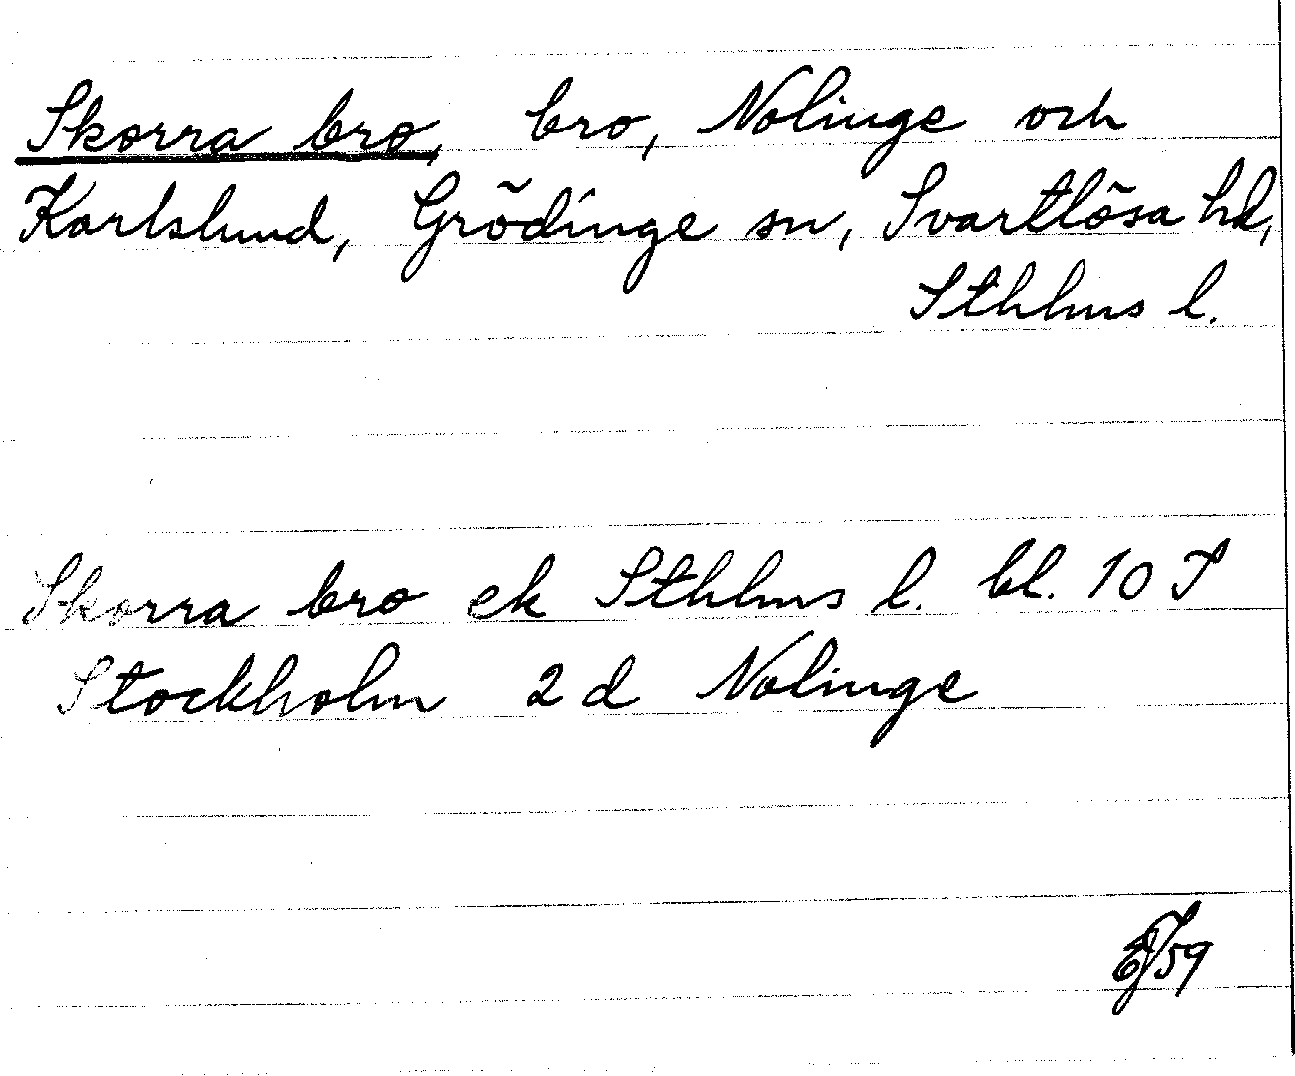 Skorra bro, bro, Nolinge och
Karlslund, Grödinge sn, Svartlösa hd,
Sthlms l.
Skorra bro ek Sthlms l. bl. 10 I
Stockholm 2 d Nolinge